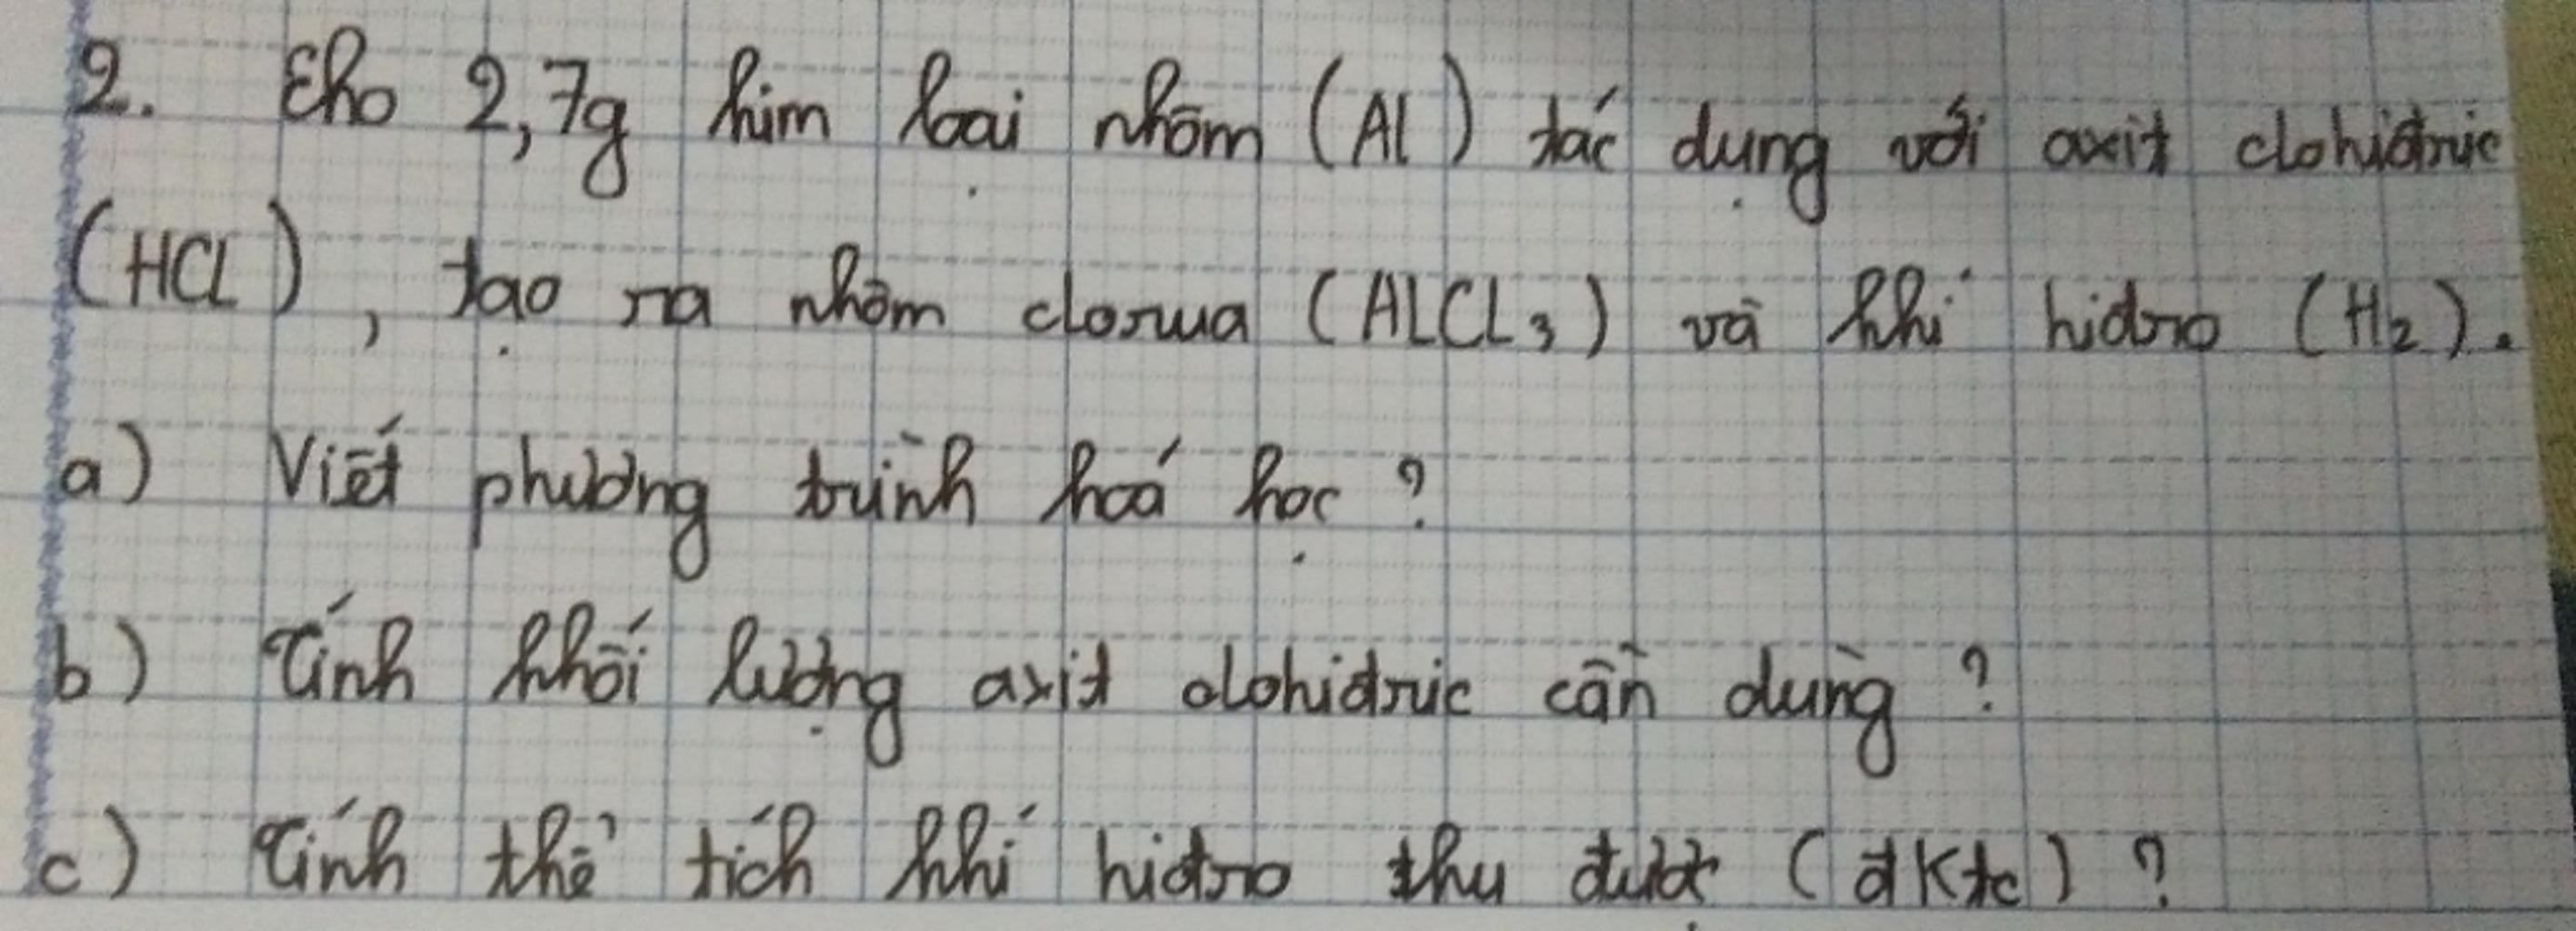 2. Cho 2,7g kim loại nhôm (Al) tác dụng với axit clohiđric
(HCL), tạo ra nhôm clorua (ALCL₃) và khí hiđro (H₂).
a) Viết phương trình hoá học ?
b) Tính khối lượng axit clohiđric cần dùng ?
c) Tính thể tích khí hiđro thu được (đktc) ?